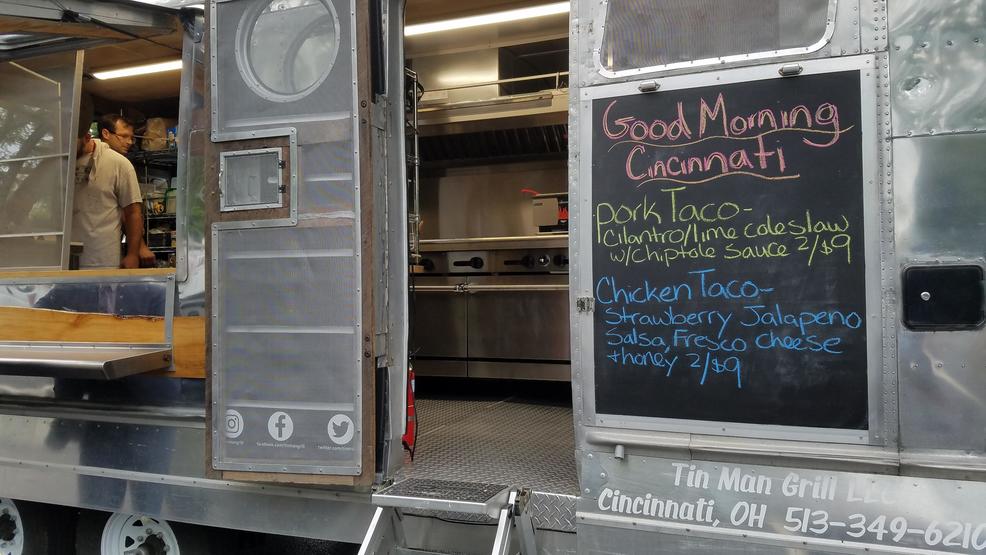 Good Morning
Cincinnati
Pork Taco-
Cilantro/lime coleslaw
w/Chiptole Sauce 2/$9
Chicken Taco-
Strawberry Jalapeno
Salsa, Fresco Cheese
+honey 2/$9
Tin Man Grill LLC
Cincinnati, OH 513-349-6210